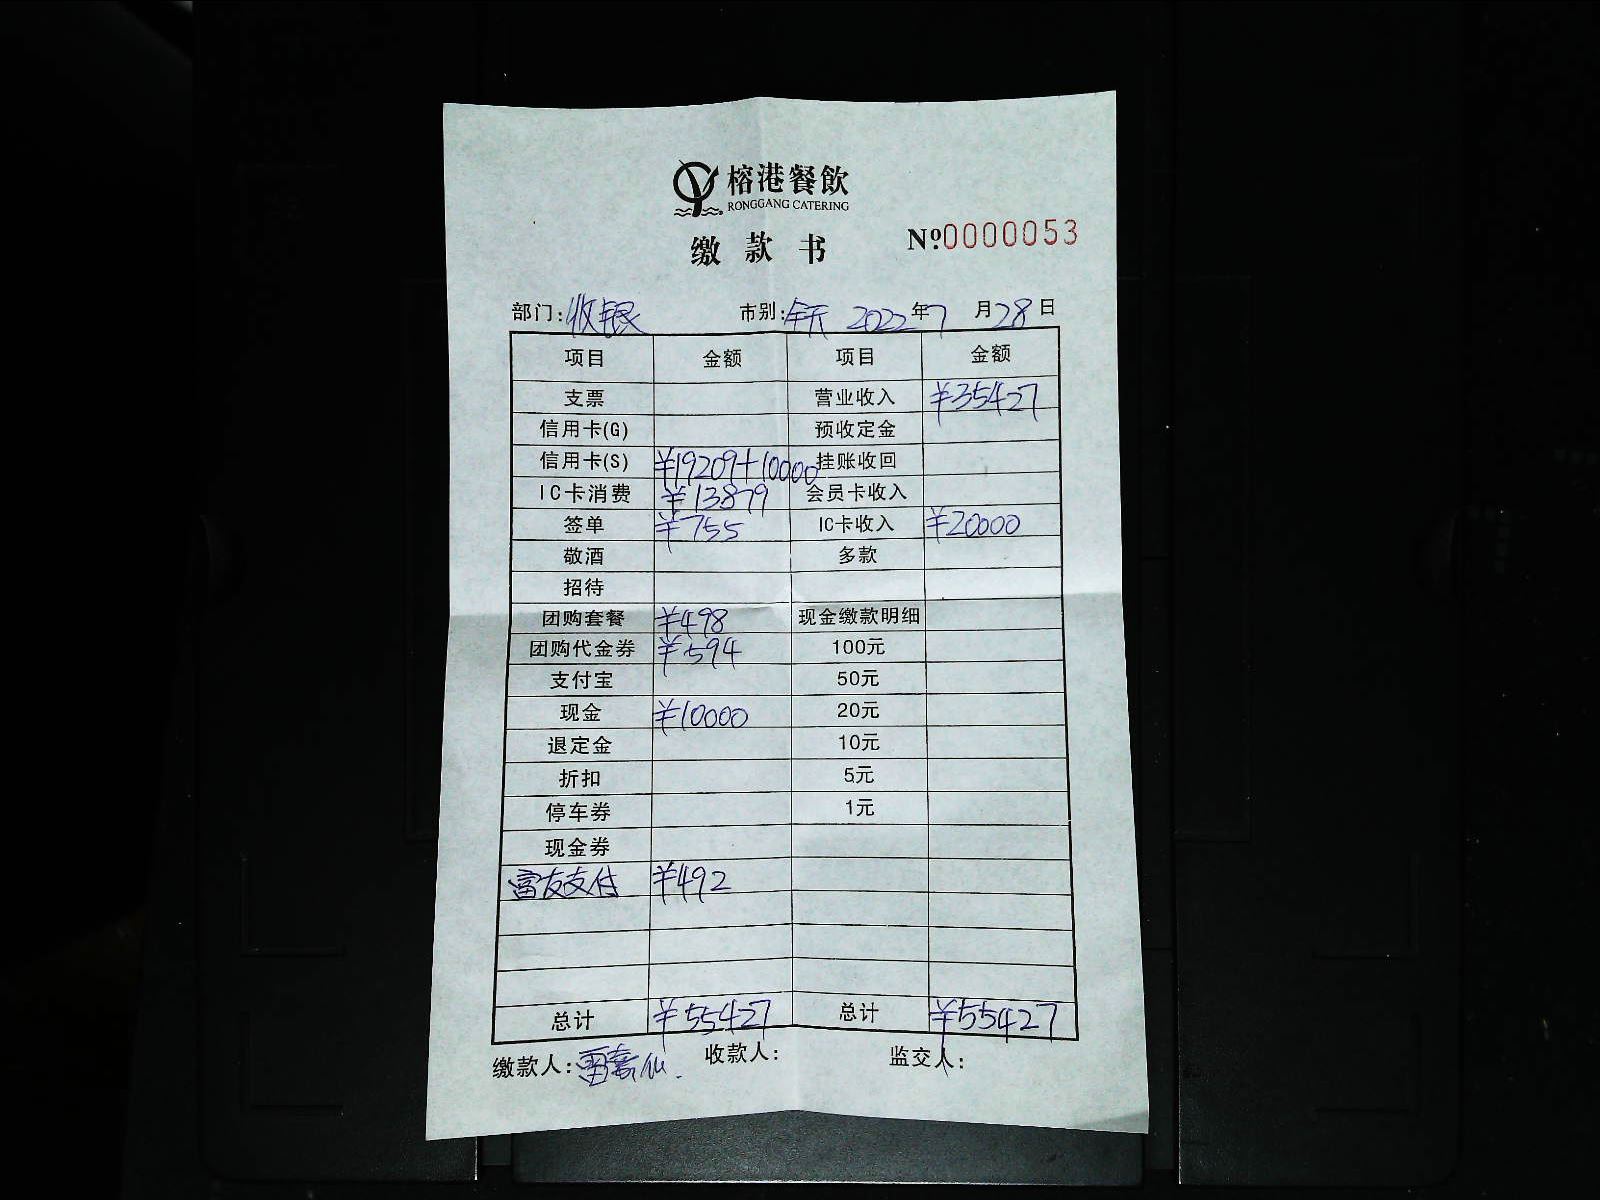 榕港餐飲
RONGGANG CATERING
缴款书 №0000053
部门:收银 市别:全天 2022年7月28日
项目 金额 项目 金额
支票 营业收入 ¥35427
信用卡(G) 预收定金
信用卡(S) ¥19209+10000 挂账收回
IC卡消费 ¥13879 会员卡收入
签单 ¥755 IC卡收入 ¥20000
敬酒 多款
招待
团购套餐 ¥498 现金缴款明细
团购代金券 ¥594 100元
支付宝 50元
现金 ¥10000 20元
退定金 10元
折扣 5元
停车券 1元
现金券
富友支付 ¥492
总计 ¥55427 总计 ¥55427
缴款人:雷 仙. 收款人: 监交人: